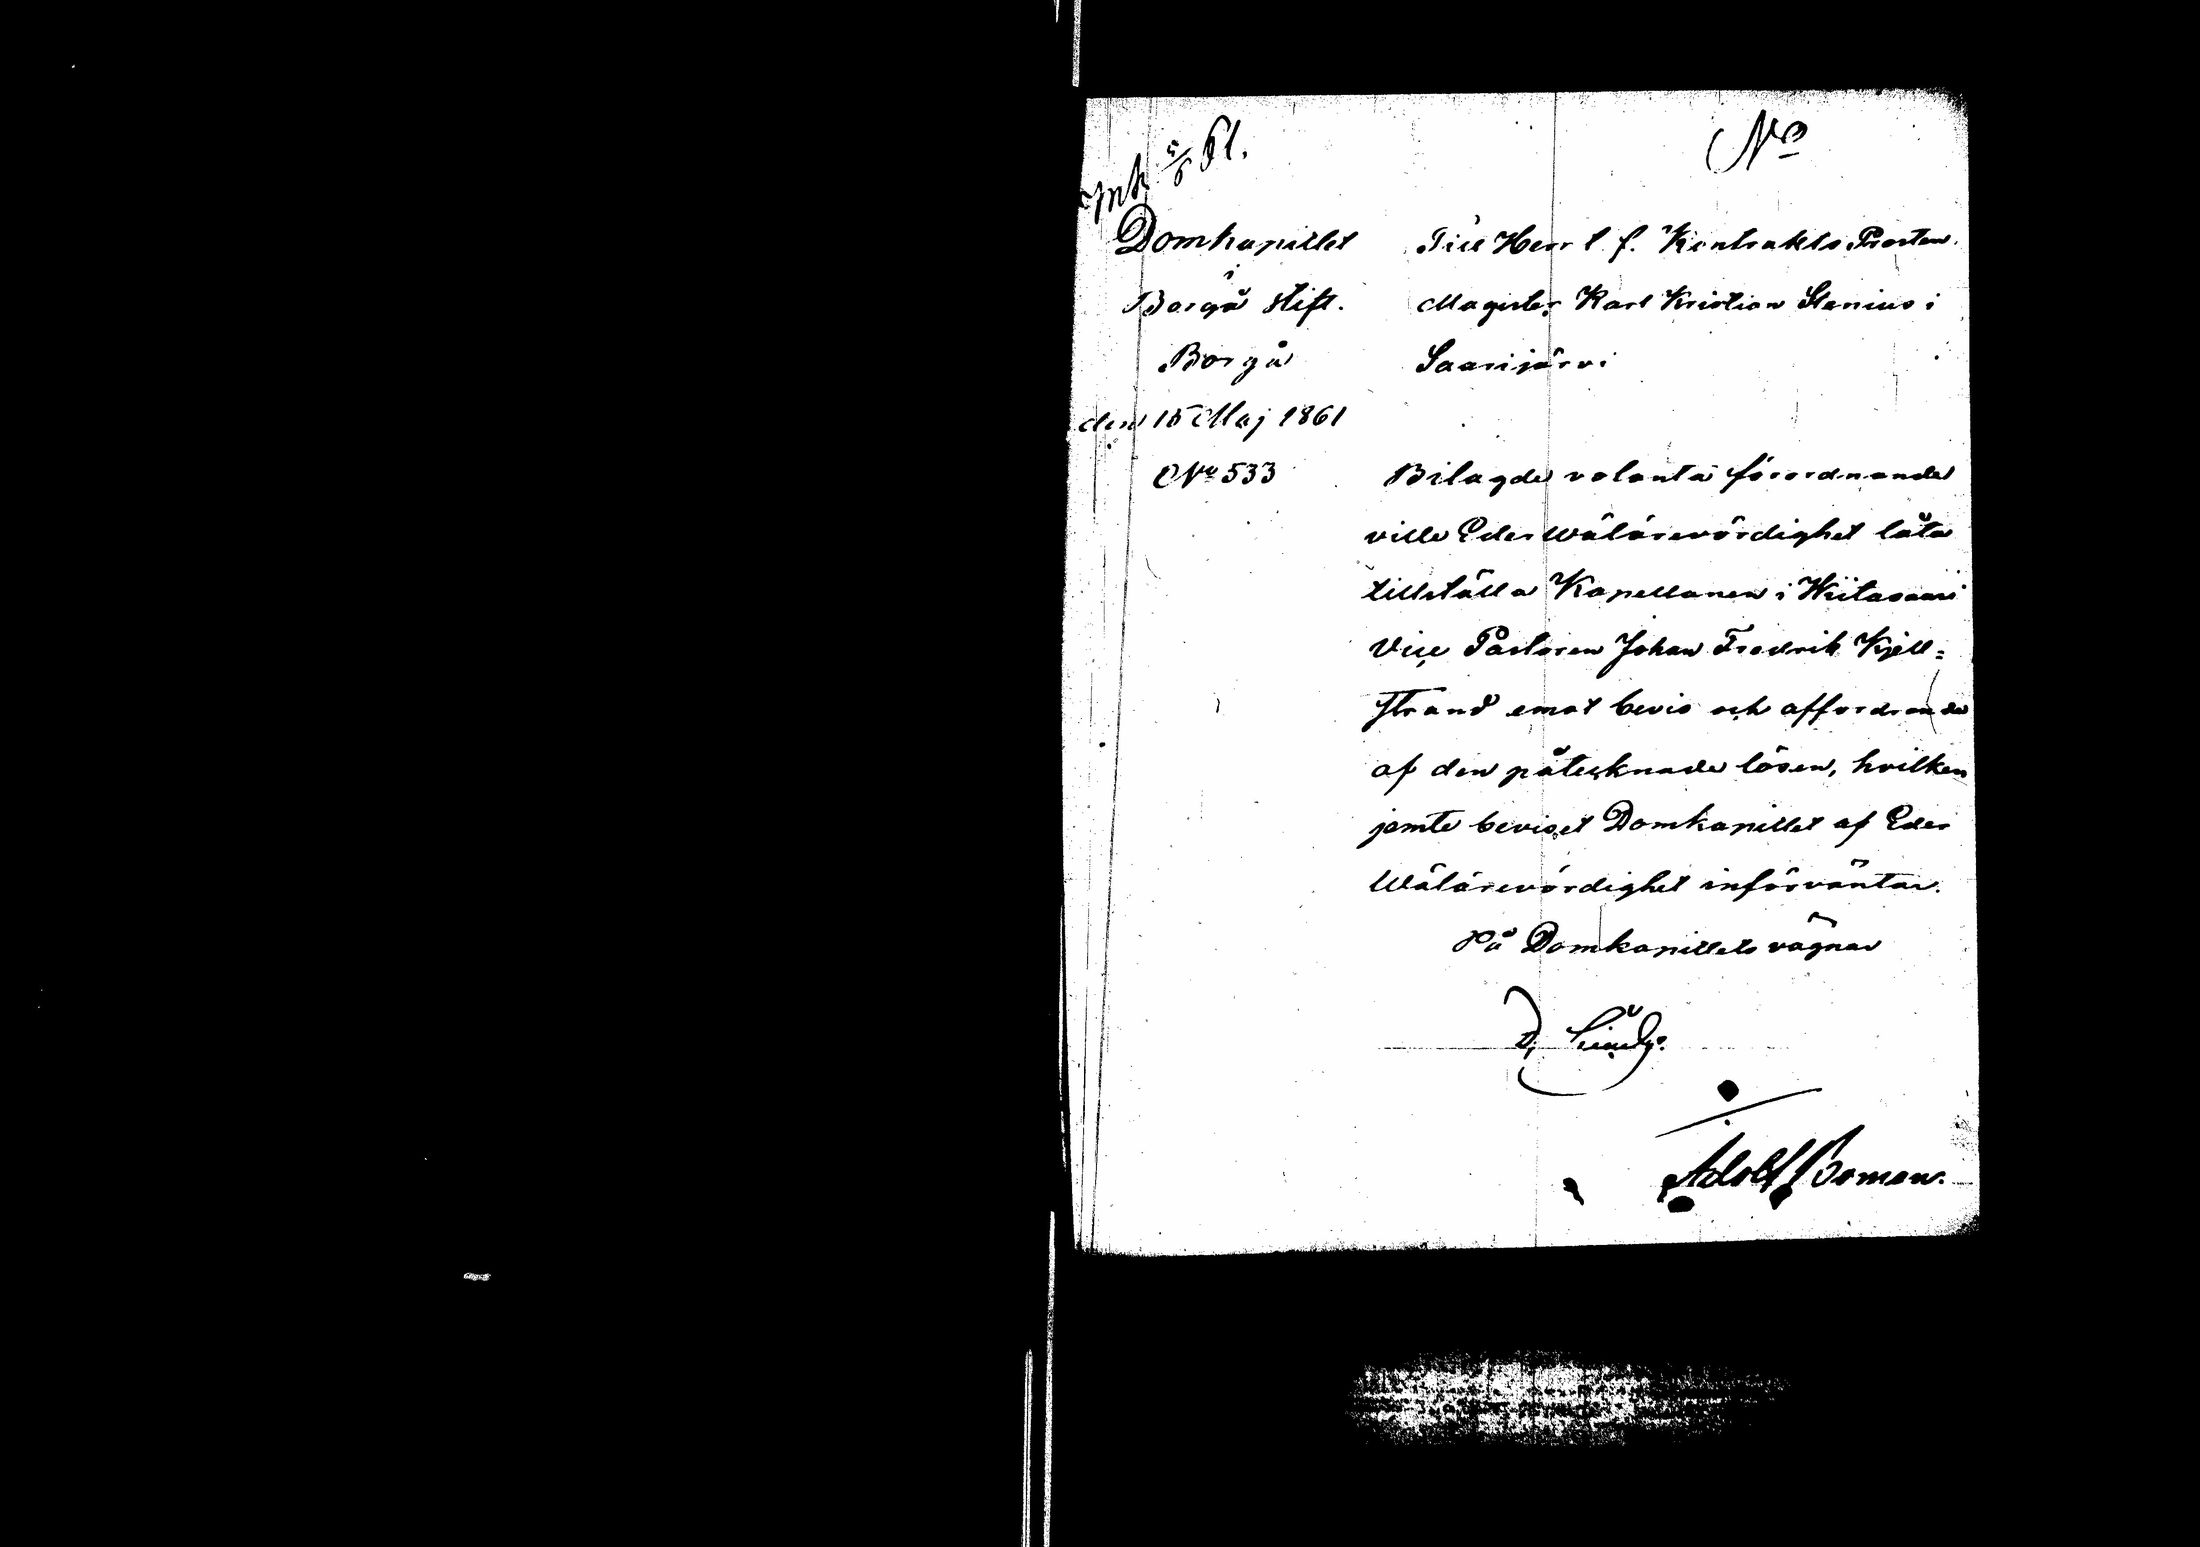 Ink 5/6 61.
No
Domkapitlet
i
Borgå Stift.
Borgå
den 15 Maj 1861
No 533
Till Herr t. f. Kontrakts Prosten
Magister Karl Kristian Stenius i
Saarijärvi
Bilagde volanta förordnande
ville Eder Wälärevördighet låta
tillställa Kapellanen i Wiitasaari
Vice Pastoren Johan Fredrik Kjell=
strand emot bevis och affordrande
af den påtecknade lösen, hvilken
jemte beviset Domkapitlet af Eder
Wälärevördighet införväntar.
På Domkapitlets vägnar
Adolf Boman.